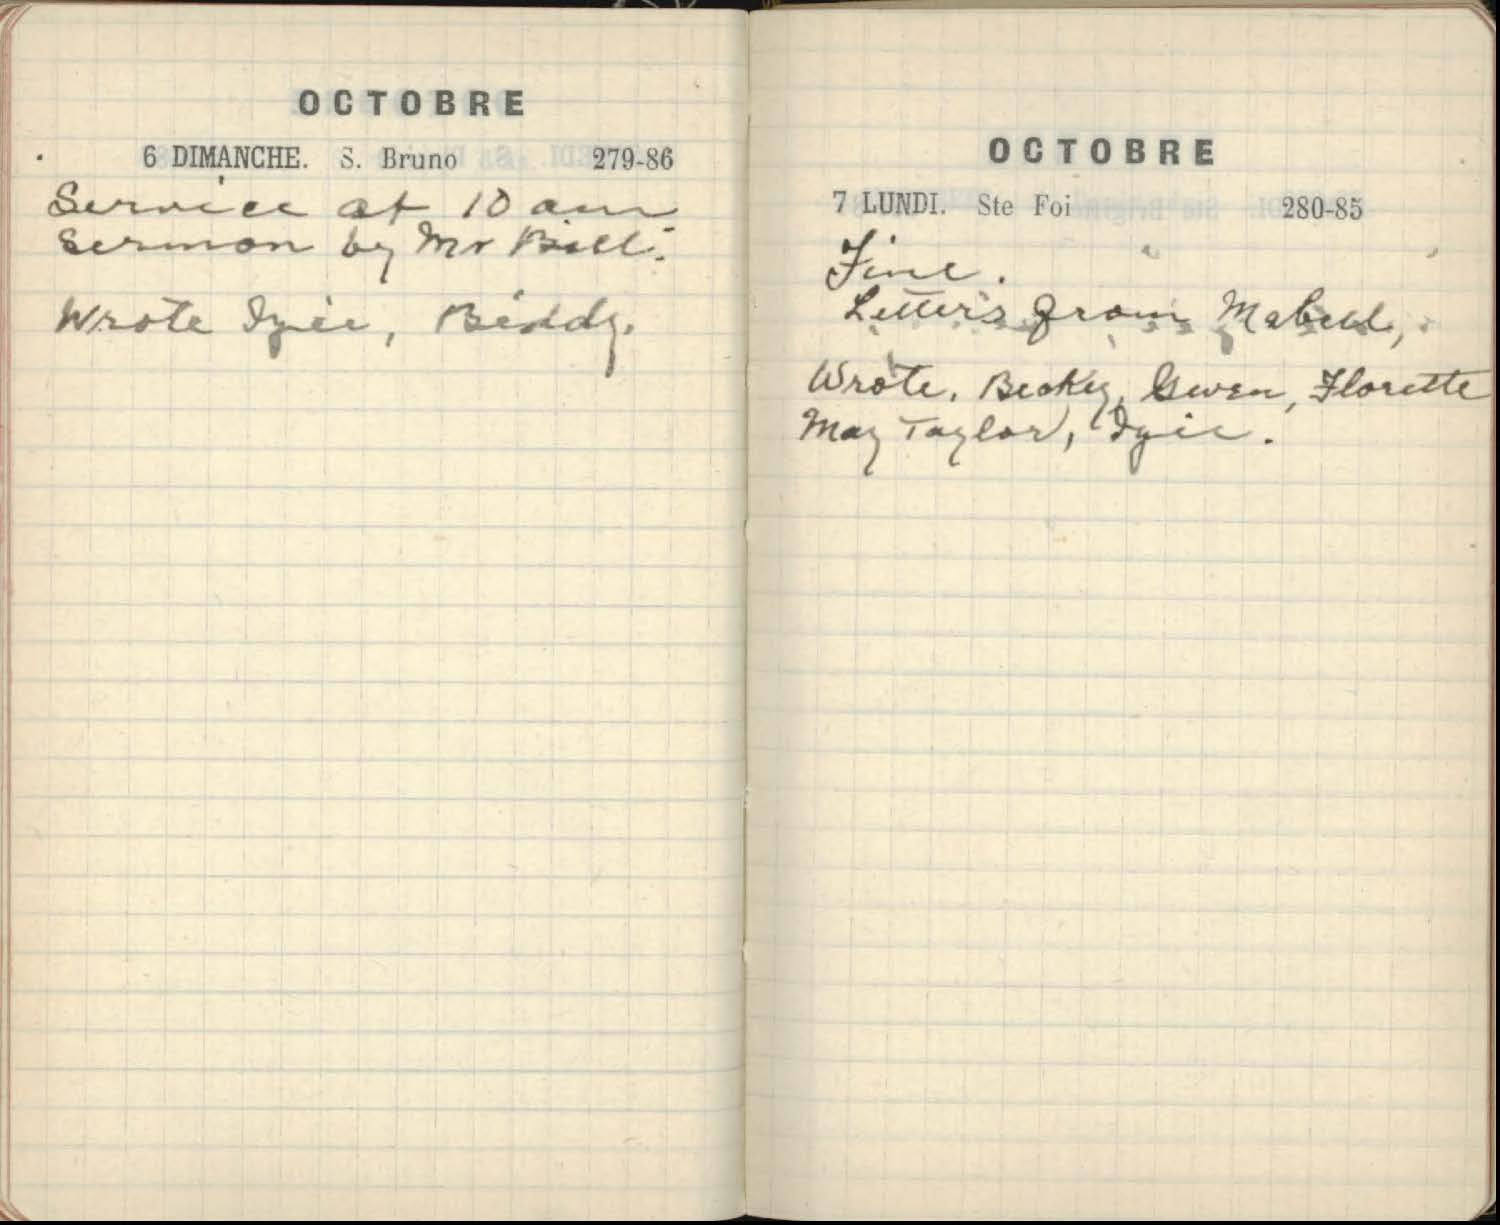 OCTOBRE
6 DIMANCHE. S. Bruno 279-86
Service at 10 am
Sermon by Mr Bill.
Wrote Izie, Biddy.
OCTOBRE
7 LUNDI. Ste Foi 280-85
Fine.
Letters from Mabell,
Wrote, Beckey, Gwen, Florette
May Taylor, Izie.